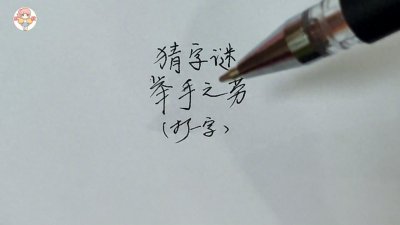 猜字谜
举手之劳
（打一字）